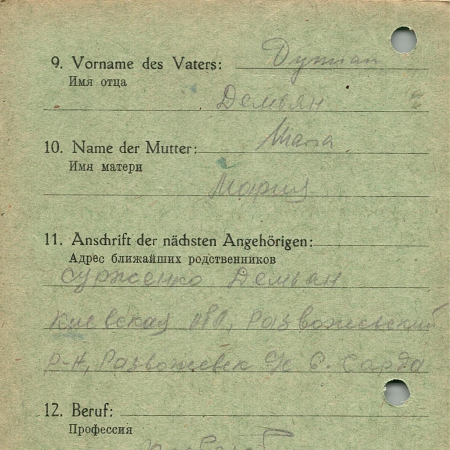 9. Vorname des Vaters: Dymian
Имя отца
Демьян
10. Name der Mutter: Maria
Имя матери
Мария
11. Anschrift der nächsten Angehörigen:
Адрес ближайших родственников
Сурженко Демьян
Киевская обл, Развожевский
р-н, Развожевск с/с с.
12. Beruf:
Профессия